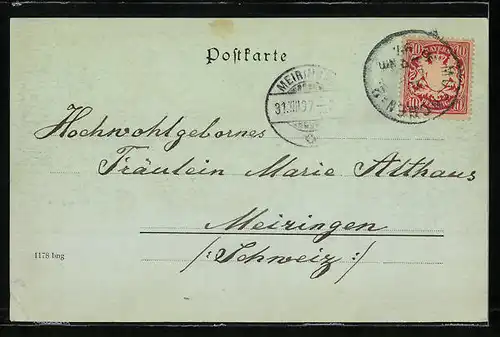 Postkarte
BAYERN
10 10
MEIRINGEN
31.VIII.97
Hochwohlgebornes
Fräulein Marie Althaus
Meiringen
/: Schweiz :/
1178 bng